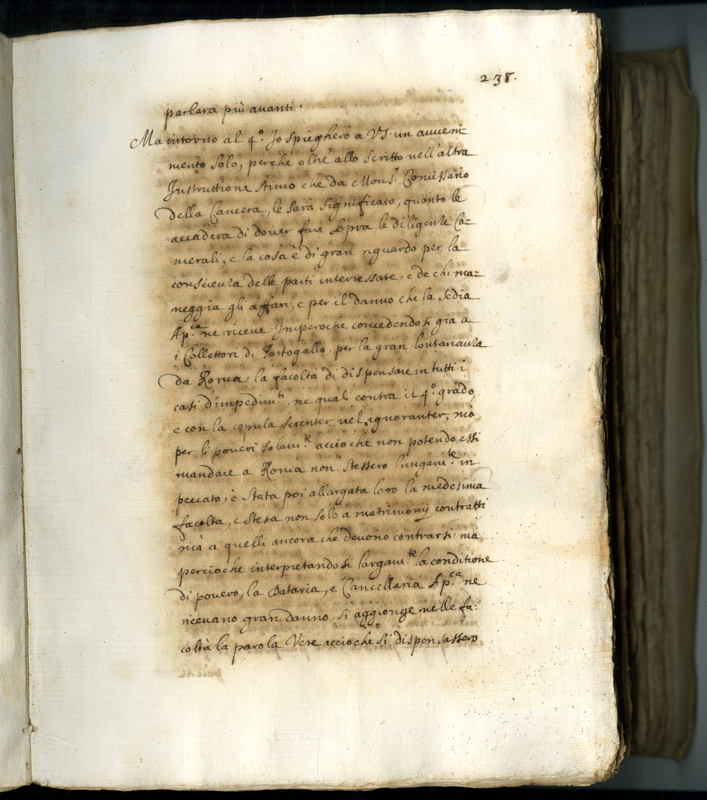 238.
parlara più avanti.
Ma intorno al 4.º Io spieghero a VS un avveni=
mento solo, perche oltre allo scritto nell'altra
Instruttione stimo che da Mons.r Comissario
della Camera, le sarà significato, quanto le
accadera di dover fare sopra le diligenze Ca=
merali, e la cosa è di gran riguardo per la
conscienza delle parti interessate, e de chi ma=
neggia gli affari, e per il danno che la sedia
Ap.ca ne riceve Imperoche concedendosi gia a
i Collettori di Portogallo, per la gran lontananza
da Roma la facolta di dispensare in tutti i
casi d'impedim.ti, ne quali contra il 4.º grado
e con la copula scienter vel ignoranter, mà
per li poveri solam.te accioche non potendo essi
mandare a Roma non stessero lungam.te in
peccato, è stata poi allargata loro la medesima
facolta, e stesa non solo a matrimonij contratti
mà a quelli ancora che devono contrarsi mà
percioche interpretandosi largam.te la conditione
di povero, la Dataria, e Cancellaria Ap.ca ne
ricevano gran danno si aggionge nelle fa=
coltà la parola Vere accioche si dispensassero